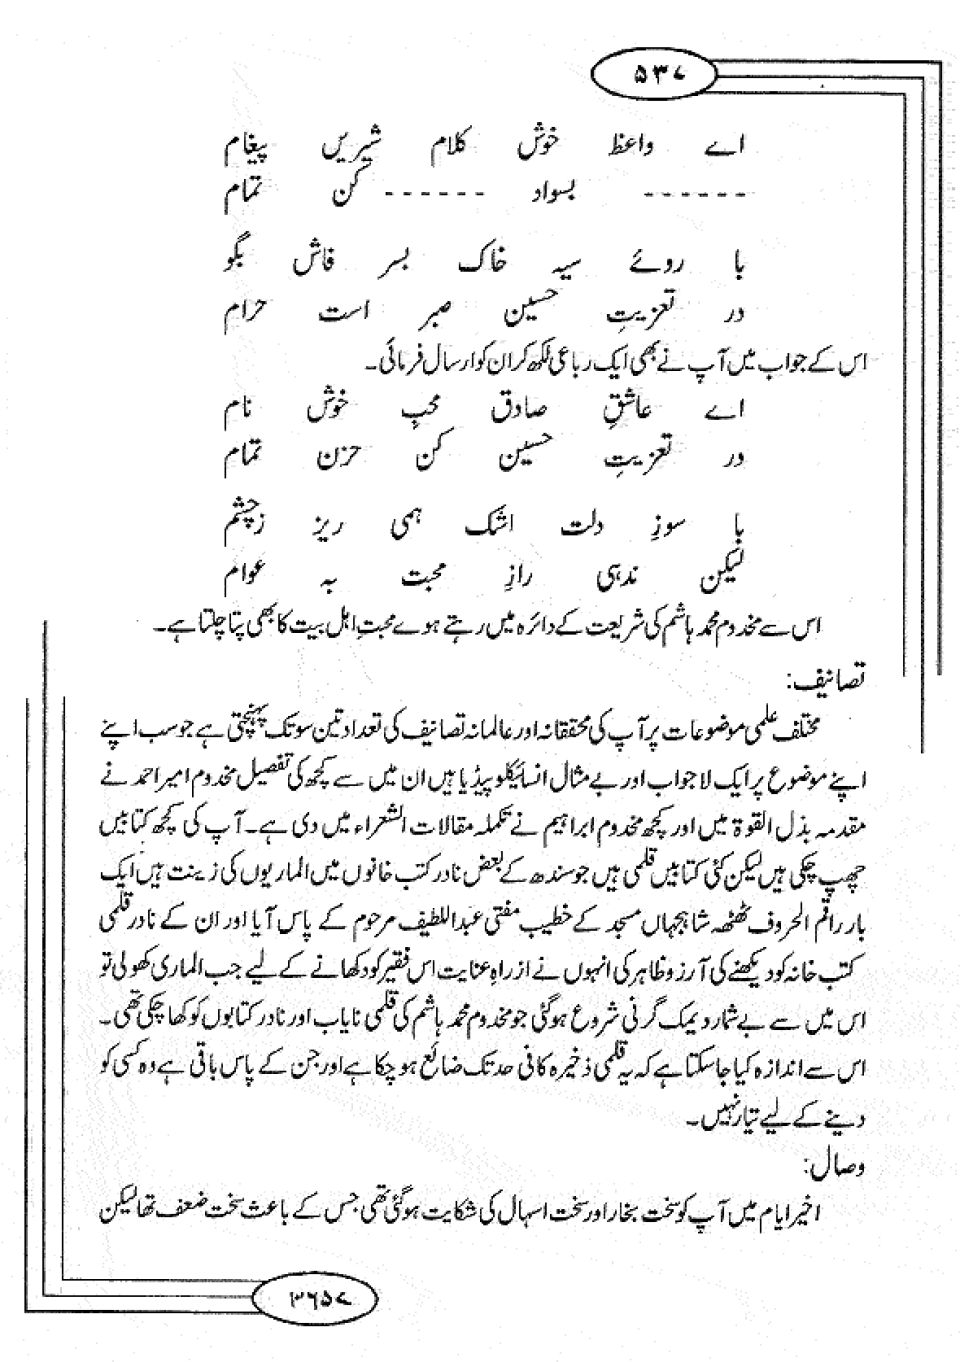 ۵۳۷
اے واعظ خوش کلام شیریں پیغام
------ بسواد ------ کن تمام
با روئے سیہ خاک بسر فاش بگو
در تعزیتِ حسین صبر است حرام
اس کے جواب میں آپ نے بھی ایک رباعی لکھ کر ان کو ارسال فرمائی۔
اے عاشقِ صادق محبِ خوش نام
در تعزیتِ حسین کن حزن تمام
با سوزِ دلت اشک ہمی ریز زچشم
لیکن ندہی رازِ محبت بہ عوام
اس سے مخدوم محمد ہاشم کی شریعت کے دائرہ میں رہتے ہوے محبتِ اہل بیت کا بھی پتا چلتا ہے۔
تصانیف:
مختلف علمی موضوعات پر آپ کی محققانہ اور عالمانہ تصانیف کی تعداد تین سو تک پہنچتی ہے جو سب اپنے
اپنے موضوع پر ایک لاجواب اور بے مثال انسائیکلوپیڈیا ہیں ان میں سے کچھ کی تفصیل مخدوم امیر احمد نے
مقدمہ بذل القوۃ میں اور کچھ مخدوم ابراہیم نے تکملہ مقالات الشعراء میں دی ہے۔ آپ کی کچھ کتابیں
چھپ چکی ہیں لیکن کئی کتابیں قلمی ہیں جو سندھ کے بعض نادر کتب خانوں میں الماریوں کی زینت ہیں ایک
بار راقم الحروف ٹھٹھہ شاہجہاں مسجد کے خطیب مفتی عبداللطیف مرحوم کے پاس آیا اور ان کے نادر قلمی
کتب خانہ کو دیکھنے کی آرزو ظاہر کی انہوں نے از راہِ عنایت اس فقیر کو دکھانے کے لیے جب الماری کھولی تو
اس میں سے بے شمار دیمک گرنی شروع ہوگئی جو مخدوم محمد ہاشم کی قلمی نایاب اور نادر کتابوں کو کھا چکی تھی۔
اس سے اندازہ کیا جاسکتا ہے کہ یہ قلمی ذخیرہ کافی حد تک ضائع ہو چکا ہے اور جن کے پاس باقی ہے وہ کسی کو
دینے کے لیے تیار نہیں۔
وصال:
اخیر ایام میں آپ کو سخت بخار اور سخت اسہال کی شکایت ہوگئی تھی جس کے باعث سخت ضعف تھا لیکن
۳۶۵۷